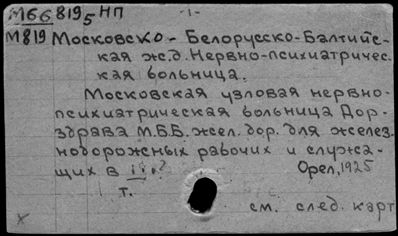 М66 8195 НП
М819 Московско-Белорусско-Балтийс-
кая ж.д. Нервно-психиатричес-
кая больница.
Московская узловая нервно-
психиатрическая больница Дор-
здрава М.Б.Б. жел. дор. для желез-
нодорожных рабочих и служа-
щих в
Орел, 1925
т.
см. след. карт